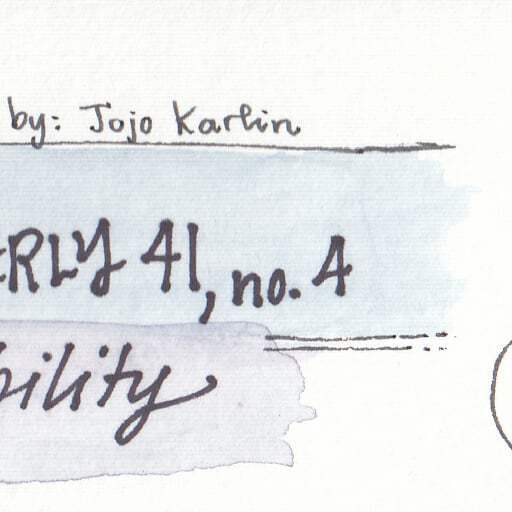 by: Jojo Karlin
ERLY 41, no. 4
bility